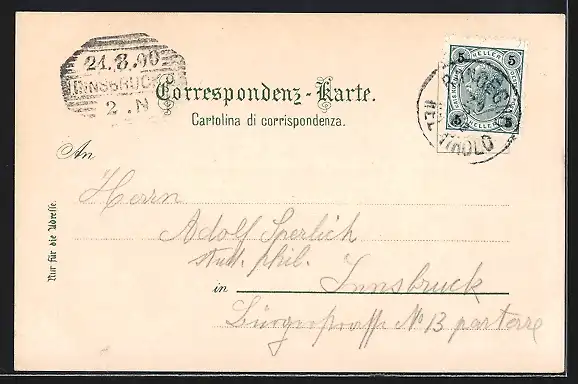 21.8.00
INNSBRUCK
2. N
Correspondenz-Karte.
Cartolina di corrispondenza.
5 HELLER 5
5 HELLER 5
NEL TIROLO
An
Herrn
Adolf Sperlich
stud. phil.
in Innsbruck
Bürgerstrasse No 13 parterre
Nur für die Adresse.